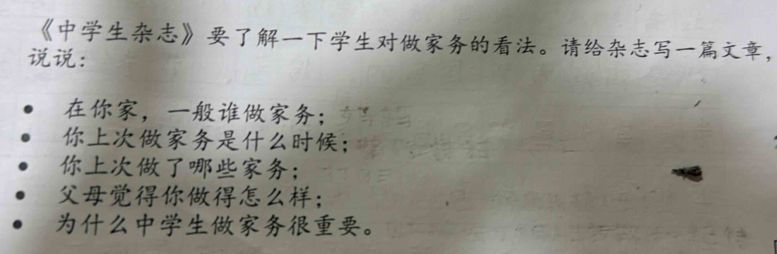 《中学生杂志》要了解一下学生对做家务的看法。请给杂志写一篇文章，
说说：
• 在你家，一般谁做家务；
• 你上次做家务是什么时候；
• 你上次做了哪些家务；
• 父母觉得你做得怎么样；
• 为什么中学生做家务很重要。